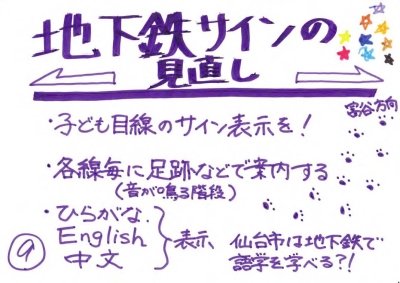 地下鉄サインの
見直し
富谷方向
・子ども目線のサイン表示を！
・各線毎に足跡などで案内する
（音が鳴る階段）
・ひらがな.
English
中文
表示、仙台市は地下鉄で
語学を学べる？！
9